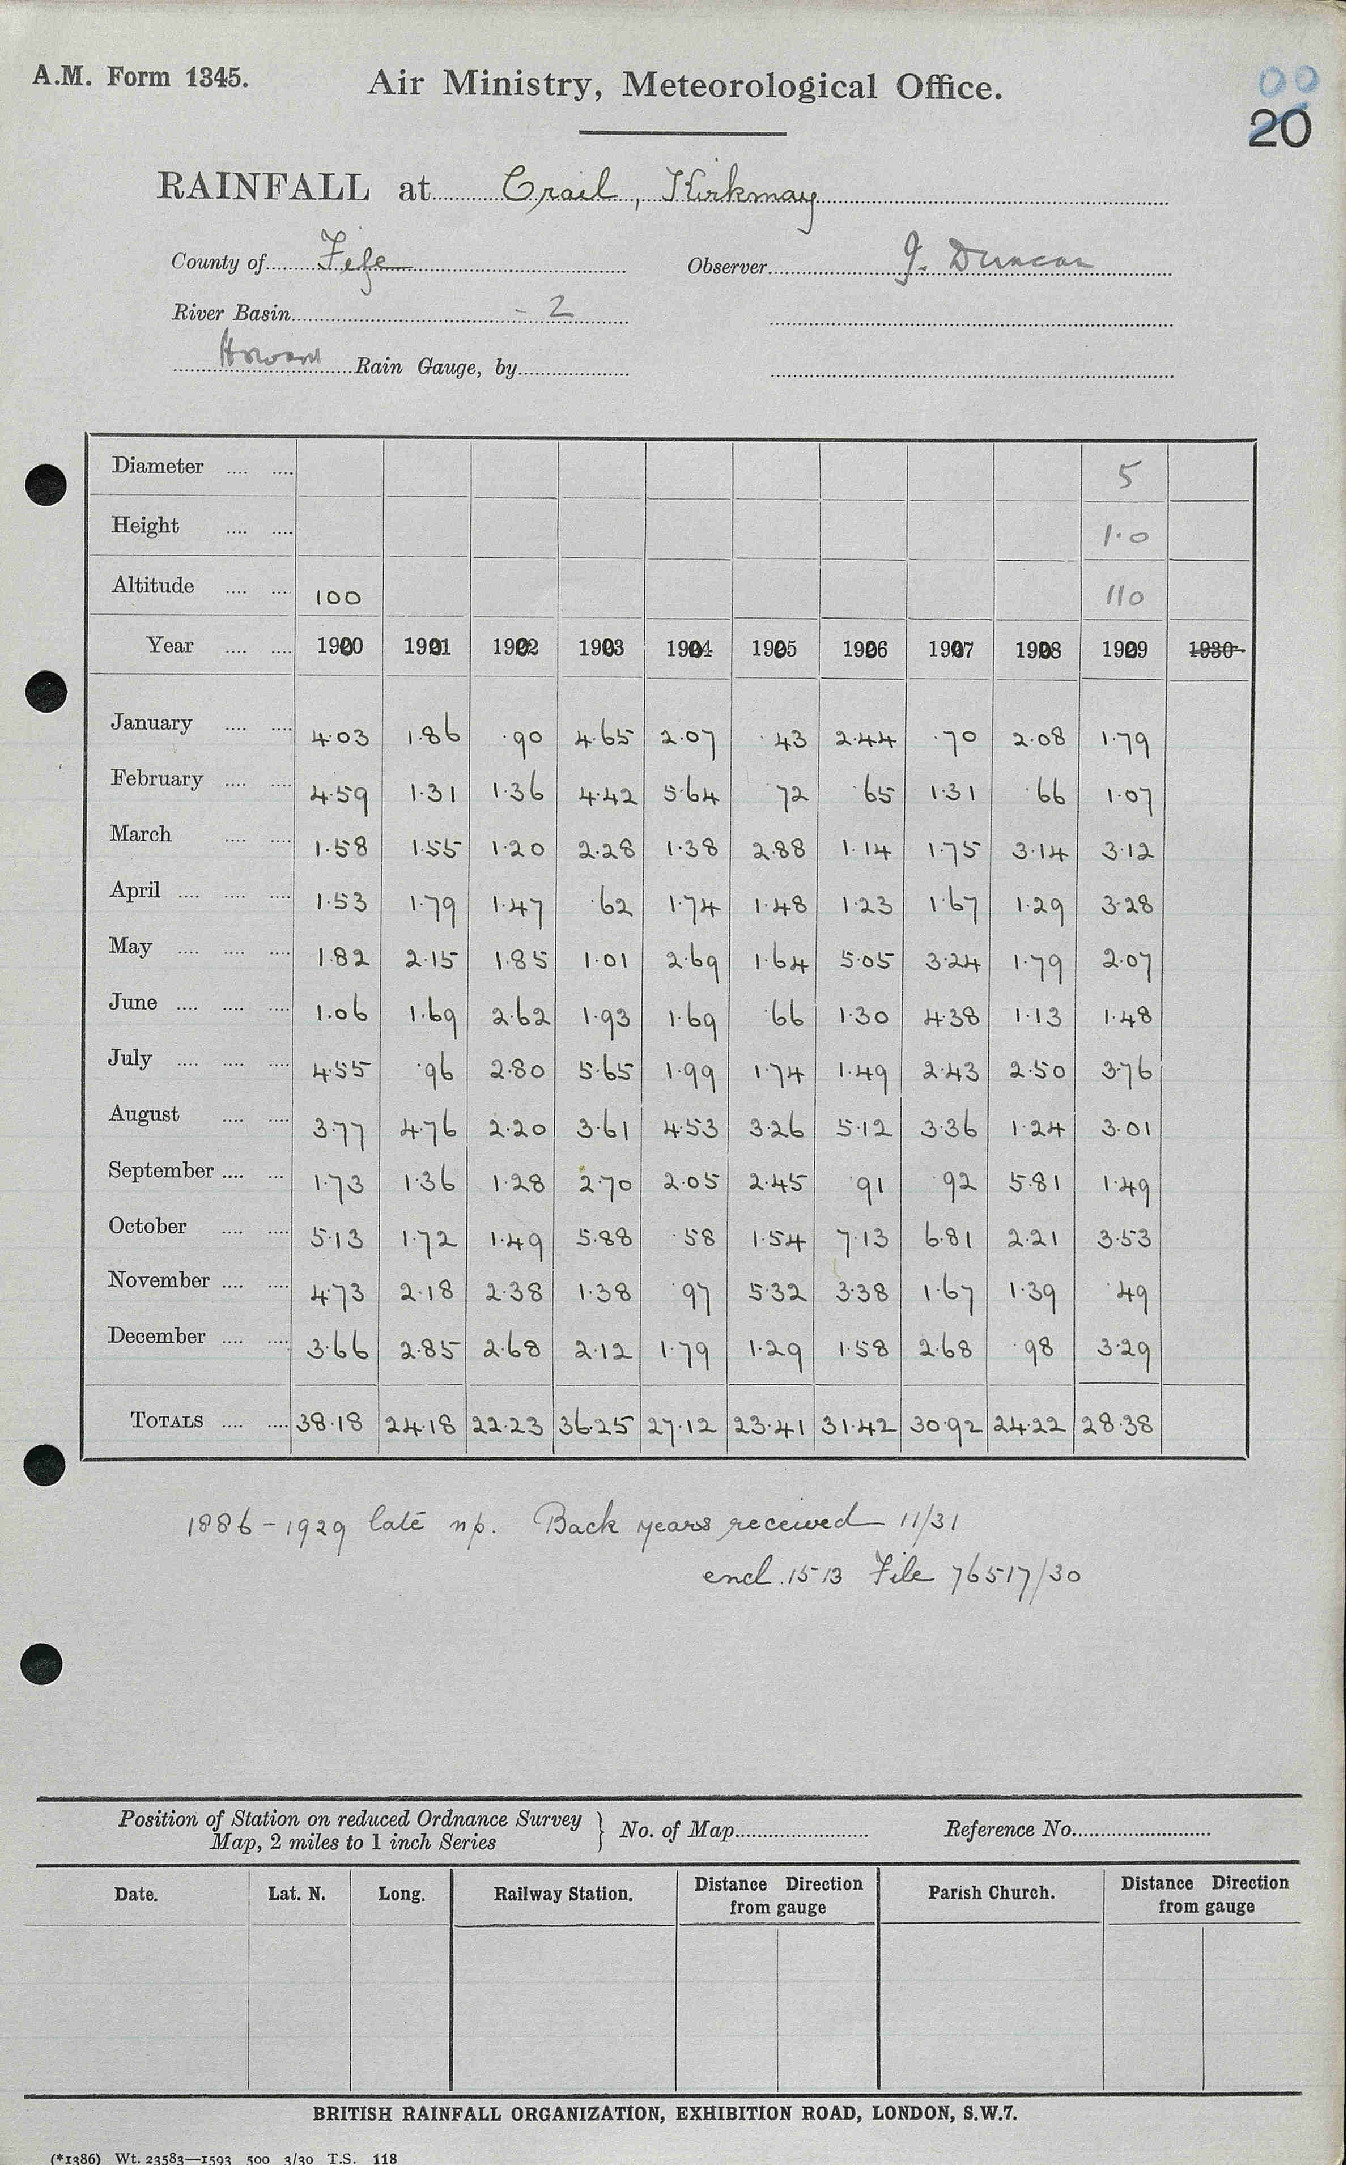 A.M. Form 1345.
Air Ministry, Meteorological Office.
00
20
RAINFALL at Crail, Kirkmay
County of Fife
Observer J. Duncan
River Basin - 2
Howard Rain Gauge, by
Diameter 5
Height 1.0
Altitude 100 110
Year 1900 1901 1902 1903 1904 1905 1906 1907 1908 1909 1930
January 4.03 1.86 .90 4.65 2.07 .43 2.44 .70 2.08 1.79
February 4.59 1.31 1.36 4.42 5.64 72 .65 1.31 .66 1.07
March 1.58 1.55 1.20 2.28 1.38 2.88 1.14 1.75 3.14 3.12
April 1.53 1.79 1.47 .62 1.74 1.48 1.23 1.67 1.29 3.28
May 1.82 2.15 1.85 1.01 2.69 1.64 5.05 3.24 1.79 2.07
June 1.06 1.69 2.62 1.93 1.69 .66 1.30 4.38 1.13 1.48
July 4.55 .96 2.80 5.65 1.99 1.74 1.49 2.43 2.50 3.76
August 3.77 4.76 2.20 3.61 4.53 3.26 5.12 3.36 1.24 3.01
September 1.73 1.36 1.28 2.70 2.05 2.45 91 .92 5.81 1.49
October 5.13 1.72 1.49 5.88 .58 1.54 7.13 6.81 2.21 3.53
November 4.73 2.18 2.38 1.38 .97 5.32 3.38 1.67 1.39 .49
December 3.66 2.85 2.68 2.12 1.79 1.29 1.58 2.68 .98 3.29
TOTALS 38.18 24.18 22.23 36.25 27.12 23.41 31.42 30.92 24.22 28.38
1886-1929 late np. Back years received 11/31
encl. 1513 File 76517/30
Position of Station on reduced Ordnance Survey
Map, 2 miles to 1 inch Series
No. of Map
Reference No.
Date. Lat. N. Long. Railway Station. Distance Direction from gauge Parish Church. Distance Direction from gauge
BRITISH RAINFALL ORGANIZATION, EXHIBITION ROAD, LONDON, S.W.7.
(*1386) Wt. 23583—1593 500 3/30 T.S. 118